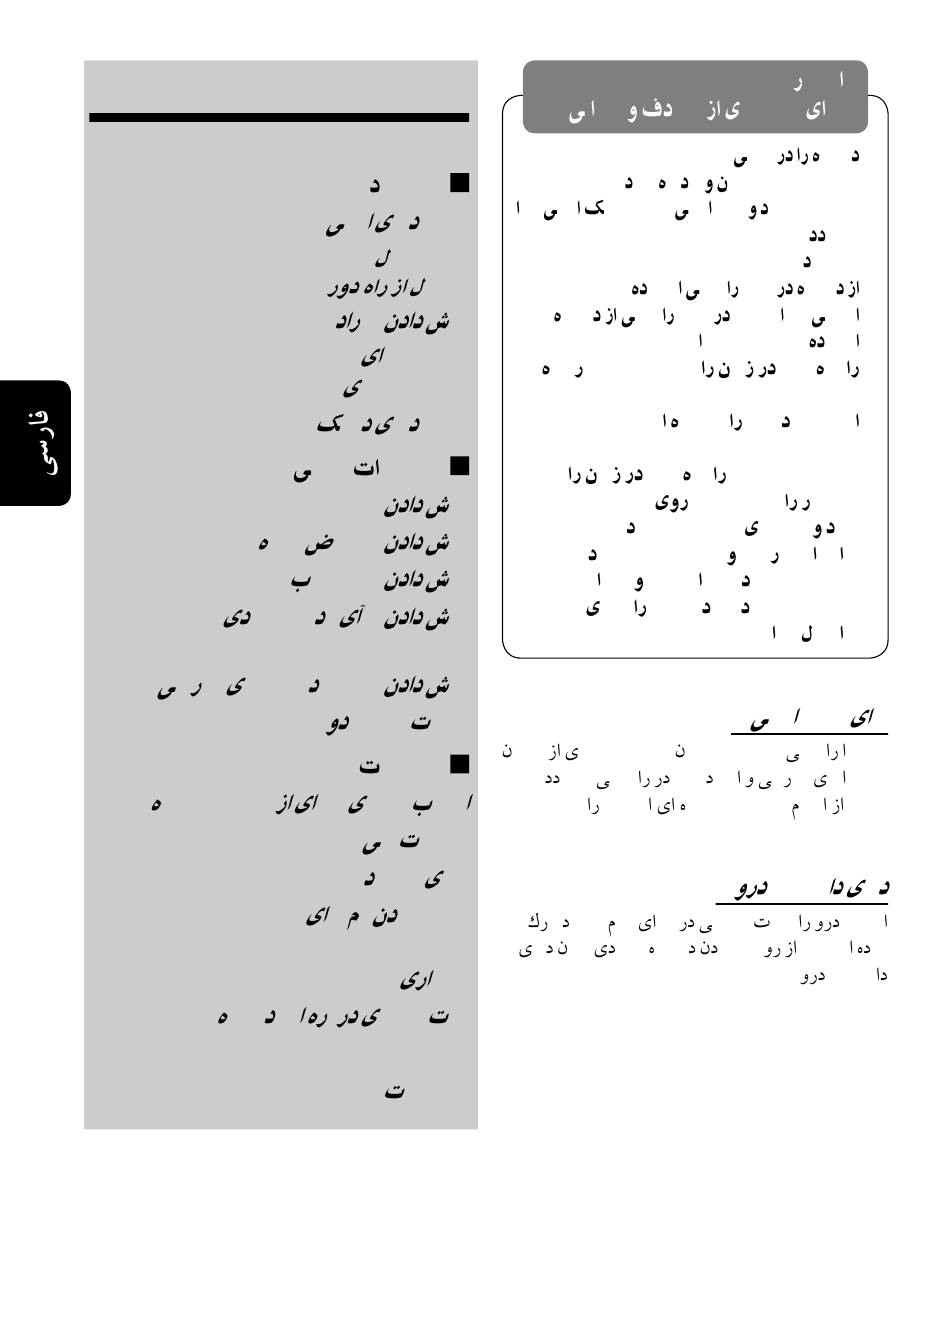 ا ر
ای ی از دف و ا می
د ه را در می
ن و د ه د
د و ا می یک ا می ا
دد
د
از د ه در را می ا ده
ا می ا در را می از د ه
ا ده ا
را ه در ز ن را ر ه
ا د را ه ا
را ه در ز ن را
ر را روی
د و ی د
ا ا ر و د
د ا و ا
د د را ی
ا ل ا
ای ا می
ا را می ن ی از ن
ا ی ر می و ا د در را می دد
از ا م ه ای ا را
د ی دا درو
ا درو را ت می در ای م د رك
ده ا از رو دن د ه دی ن د ی
دا درو
د
د ی ا می
ل
ل از راه دور
ش دادن راد
ای
ی
د ی د یک
ات می
ش دادن
ش دادن ض ه
ش دادن ب
ش دادن آی د دی
ش دادن د ی ر می
ت دو
ت
ا ب ی ای از ه
ت می
ی د
دن م ای
اری
ت ی در ره ا د ه
ت
فارسی